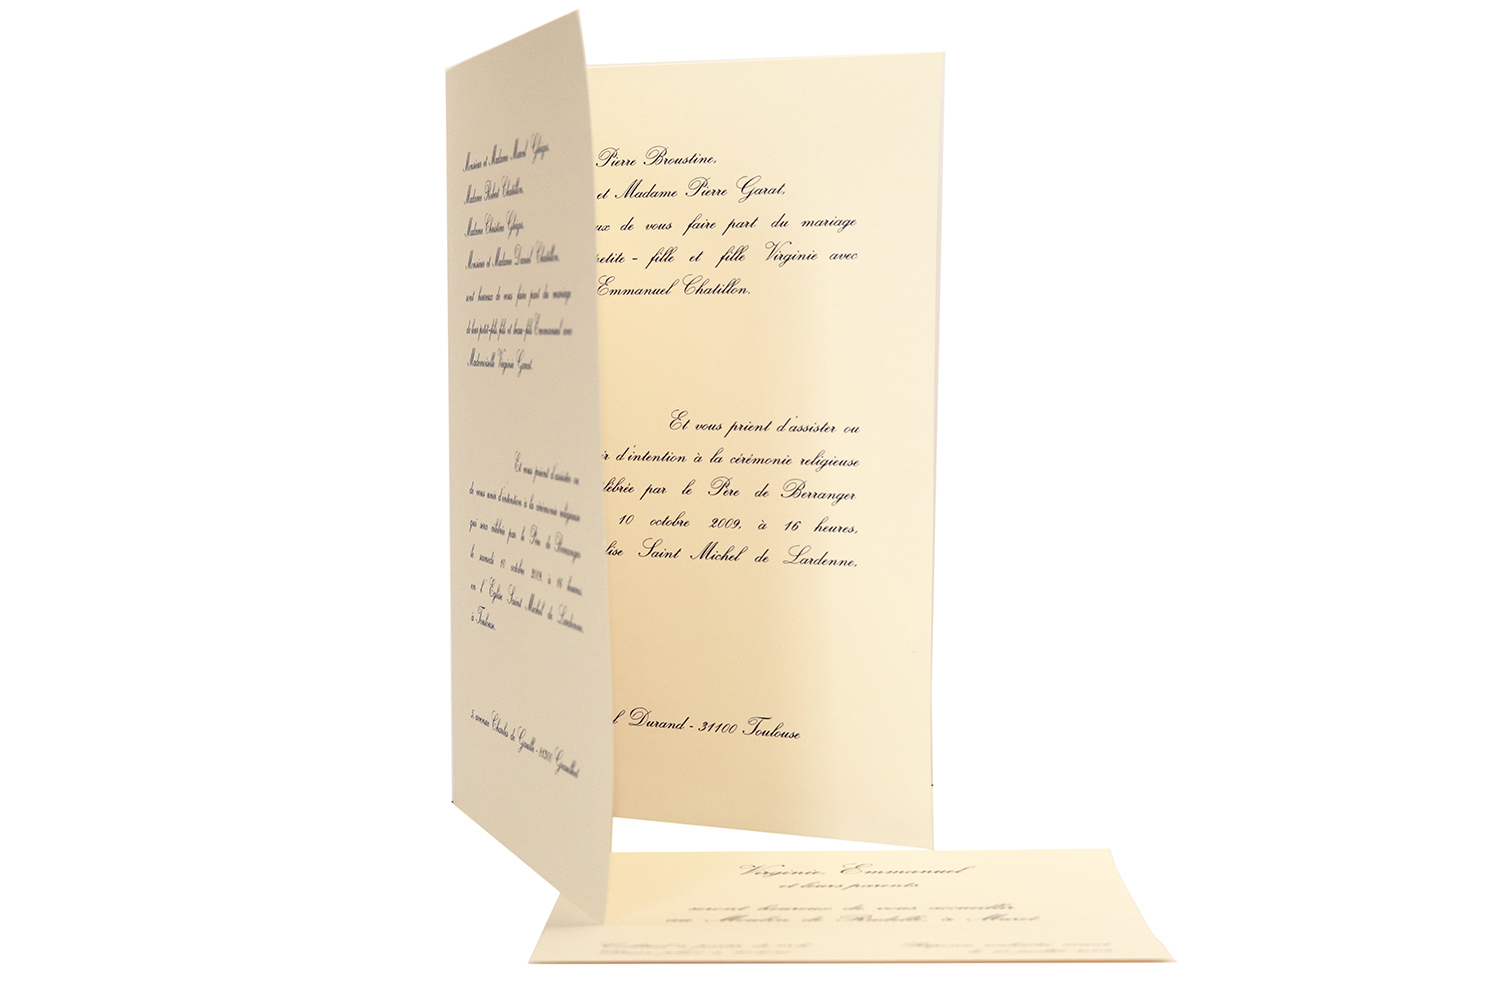 Monsieur et Madame Marcel
Madame Robert Chatillon,
Madame Christine
Monsieur et Madame Daniel Chatillon,
sont heureux de vous faire part du mariage
de leur petit-fils, fils et beau-fils Emmanuel avec
Mademoiselle Virginie Garat.
Et vous prient d'assister ou
de vous unir d'intention à la cérémonie religieuse
qui sera célébrée par le Père de Berranger
le samedi 10 octobre 2009, à 16 heures,
en l'Eglise Saint Michel de Lardenne,
à Toulouse.
5, avenue Charles de Gaulle -
Pierre Broustine,
et Madame Pierre Garat,
ux de vous faire part du mariage
petite - fille et fille Virginie avec
Emmanuel Chatillon.
Et vous prient d'assister ou
ir d'intention à la cérémonie religieuse
lébrée par le Père de Berranger
10 octobre 2009, à 16 heures,
lise Saint Michel de Lardenne,
l Durand - 31100 Toulouse
Virginie, Emmanuel
et leurs parents
seront heureux de vous accueillir
au Moulin de à Muret
Cocktail à partir de
Réponse souhaitée avant